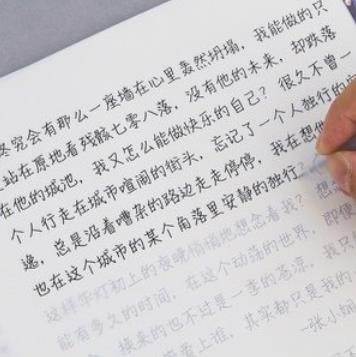 终究会有那么一座墙在心里轰然坍塌，我能做的只
站在原地看残骸七零八落，没有他的未来，却跌落
在他的城池，我又怎么能做快乐的自己？很久不曾一
个人行走在城市喧闹的街头，忘记了一个人独行的
逸，总是沿着嘈杂的路边走走停停，我在想他
也在这个城市的某个角落里安静的独行？想
这样华灯初上的夜晚悄悄地想念着我？
能有多久的时间，在这个动荡的世界，即便
换来的也不过是一季的苍凉，我只
着上谁，其实都只是我的
—张小娴